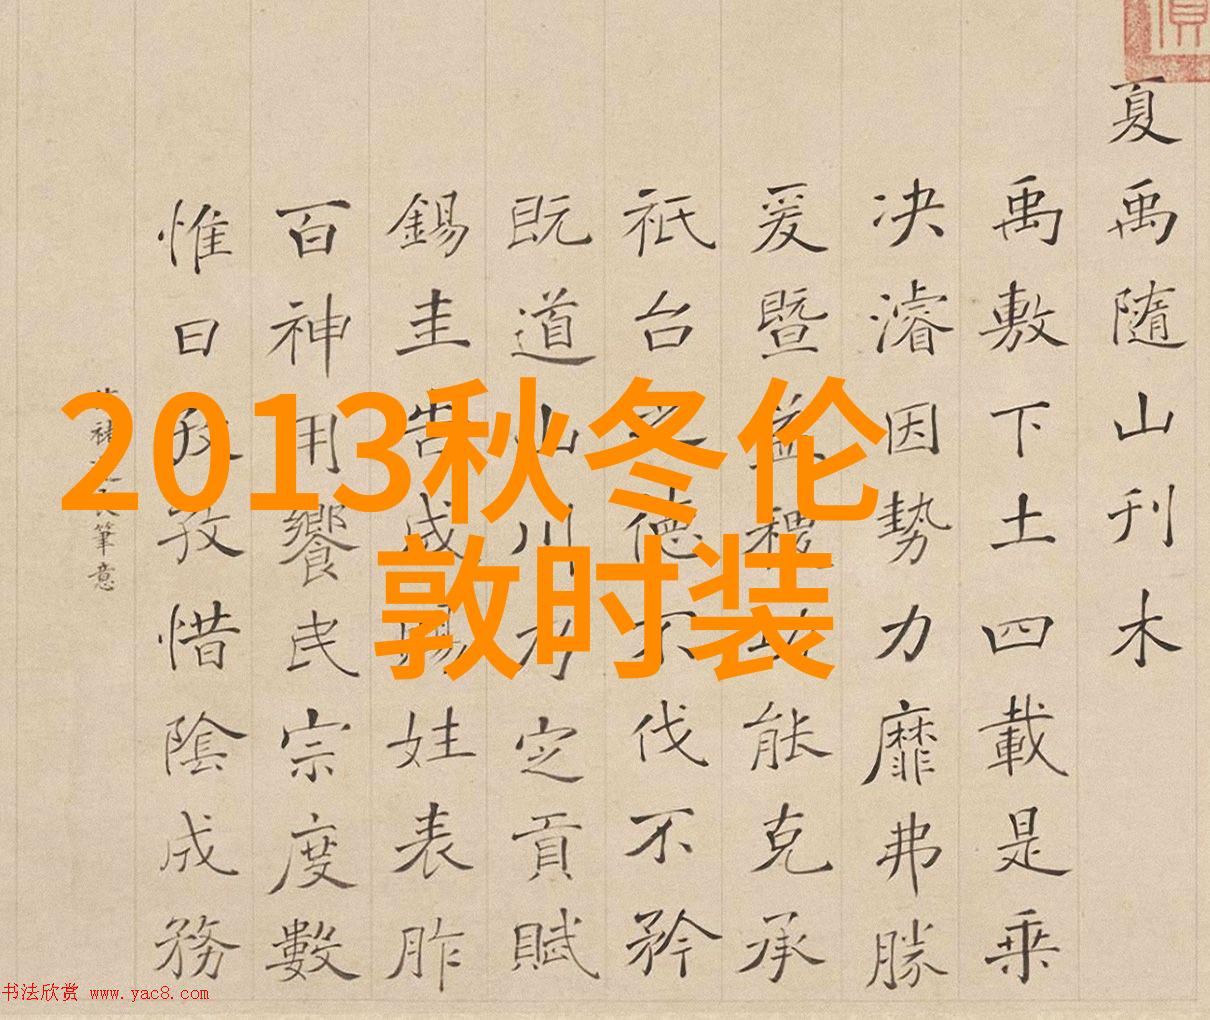 夏禹隨山刊木
禹敷下土四載是乗
决濬因勢力靡弗勝
爰暨益稷能克承
祗台德不伐不矜
既道山川定貢賦
錫圭告成娃表胙
百神用饗民宗度數
惟日孜孜惜陰成務
筆意
2013秋冬伦
敦时装
书法欣赏 www.yac8.com